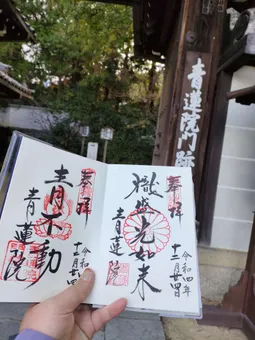 青蓮院門跡
奉拝
熾盛光如来
青蓮院
令和四年
十二月廿四日
奉拝
青不動
青蓮院
令和四年
十二月廿四日